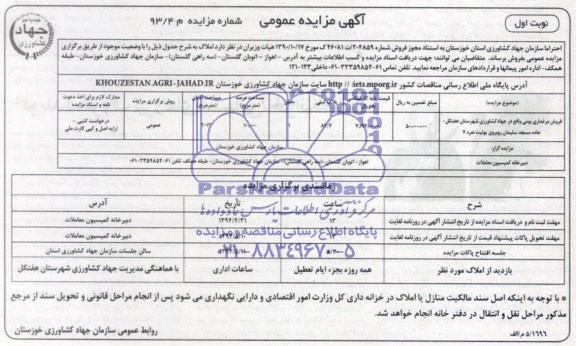 نوبت اول
آگهی مزایده عمومی
شماره مزایده م ۹۳/۴
جهاد کشاورزی
احتراما سازمان جهاد کشاورزی استان خوزستان به استناد مجوز فروش شماره ۲۰۴۸۵۹/ت۴۶۰۸۱ک مورخ ۱۳۹۰/۱۰/۱۷ هیات وزیران در نظر دارد املاک به شرح جدول ذیل را با وضعیت موجود از طریق برگزاری
مزایده عمومی بفروش برساند. متقاضیان می توانند: جهت دریافت اسناد مزایده و کسب اطلاعات بیشتر به آدرس - اهواز - اتوبان گلستان - (سه راهی گلستان)- سازمان جهاد کشاورزی خوزستان- طبقه
همکف- اداره امور پیمانها و قراردادهای سازمان مراجعه نمایند. تلفن تماس ۰۶۱-۳۳۵۹۸۵۲-۰۶۱-داخلی ۱۲۳-۱۲۱
آدرس پایگاه ملی اطلاع رسانی مناقصات کشور http // iets.mporg.ir سایت سازمان جهاد کشاورزی خوزستان KHOUZESTAN AGRI-JAHAD.IR
(موضوع مزایده)
مبلغ تضمین به ریال
روش برگزاری مزایده
مدارک لازم برای اخذ دعوت نامه و اسناد مزایده
فروش مرغداری بومی واقع در جهاد کشاورزی شهرستان هفتکل- جاده مسجد سلیمان روبروی یونیت نمره ۷
عمومی
درخواست کتبی - ارایه اصل و کپی کارت ملی
مزایده گزار:
سازمان جهاد کشاورزی خوزستان
دبیرخانه کمیسیون معاملات
اهواز - اتوبان گلستان - (سه راهی گلستان)- سازمان جهاد کشاورزی خوزستان- طبقه همکف
زمانبندی برگزاری مزایده
شرح
ساعت
تاریخ
آدرس
مهلت ثبت نام و دریافت اسناد مزایده از تاریخ انتشار آگهی در روزنامه لغایت
۱۳۹۴/۴/۳۱
دبیرخانه کمیسیون معاملات
مهلت تحویل پاکات پیشنهاد قیمت از تاریخ انتشار آگهی در روزنامه لغایت
دبیرخانه کمیسیون معاملات
جلسه افتتاح پاکات مزایده
سالن جلسات سازمان جهاد کشاورزی استان
بازدید از املاک مورد نظر
همه روزه بجزء ایام تعطیل
ساعات اداری
با هماهنگی مدیریت جهاد کشاورزی شهرستان هفتکل
ParsNamadData
مرکز فرآوری اطلاعات پارس نماد داده ها
پایگاه اطلاع رسانی مناقصه و مزایده
۰۲۱-۸۸۳۴۹۶۷۰-۵
● با توجه به اینکه اصل سند مالکیت منازل یا املاک در خزانه داری کل وزارت امور اقتصادی و دارایی نگهداری می شود پس از انجام مراحل قانونی و تحویل سند از مرجع
مذکور مراحل نقل و انتقال در دفتر خانه انجام خواهد شد.
۵/۱۶۹۶/م/الف
روابط عمومی سازمان جهاد کشاورزی خوزستان